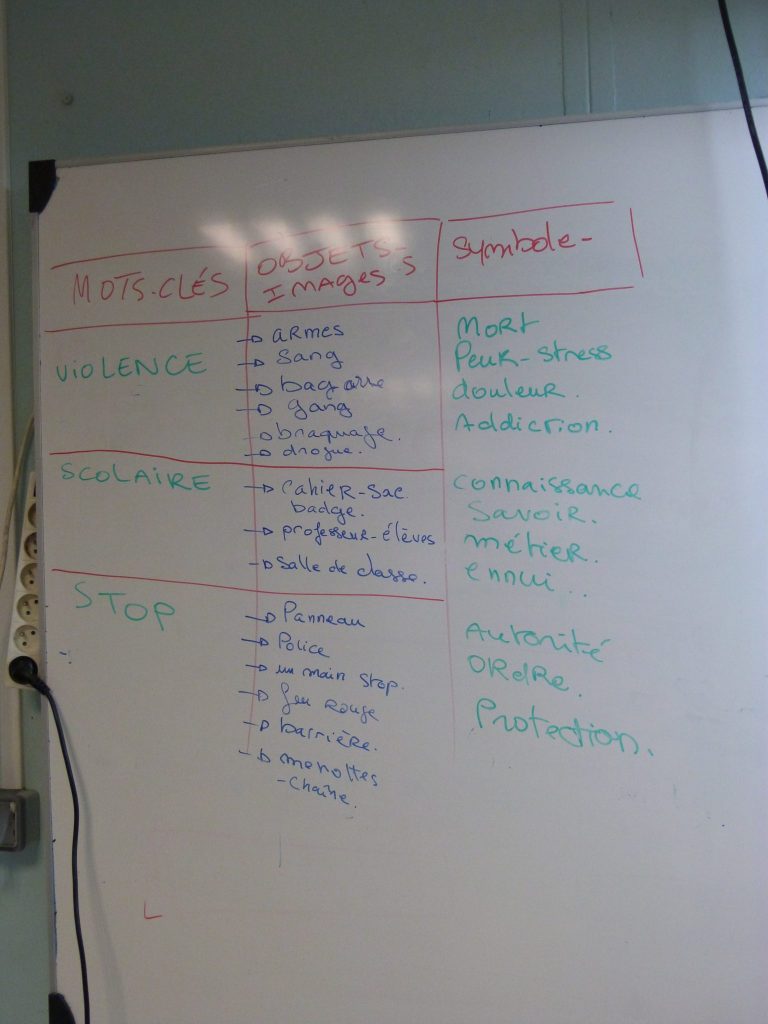 MOTS-CLÉS
OBJETS-S
IMAGES
Symbole-
VIOLENCE
ARMES
Sang
bagarre
gang
braquage.
drogue.
MORT
PEUR-Stress
douleur.
Addiction.
SCOLAIRE
CAHIER-SAC
badge.
professeur-élèves
Salle de classe.
connaissance
Savoir.
métier.
ennui..
STOP
Panneau
Police
un main Stop.
feu Rouge
barrière.
menottes
-chaîne.
Autorité
ORdRe.
Protection.